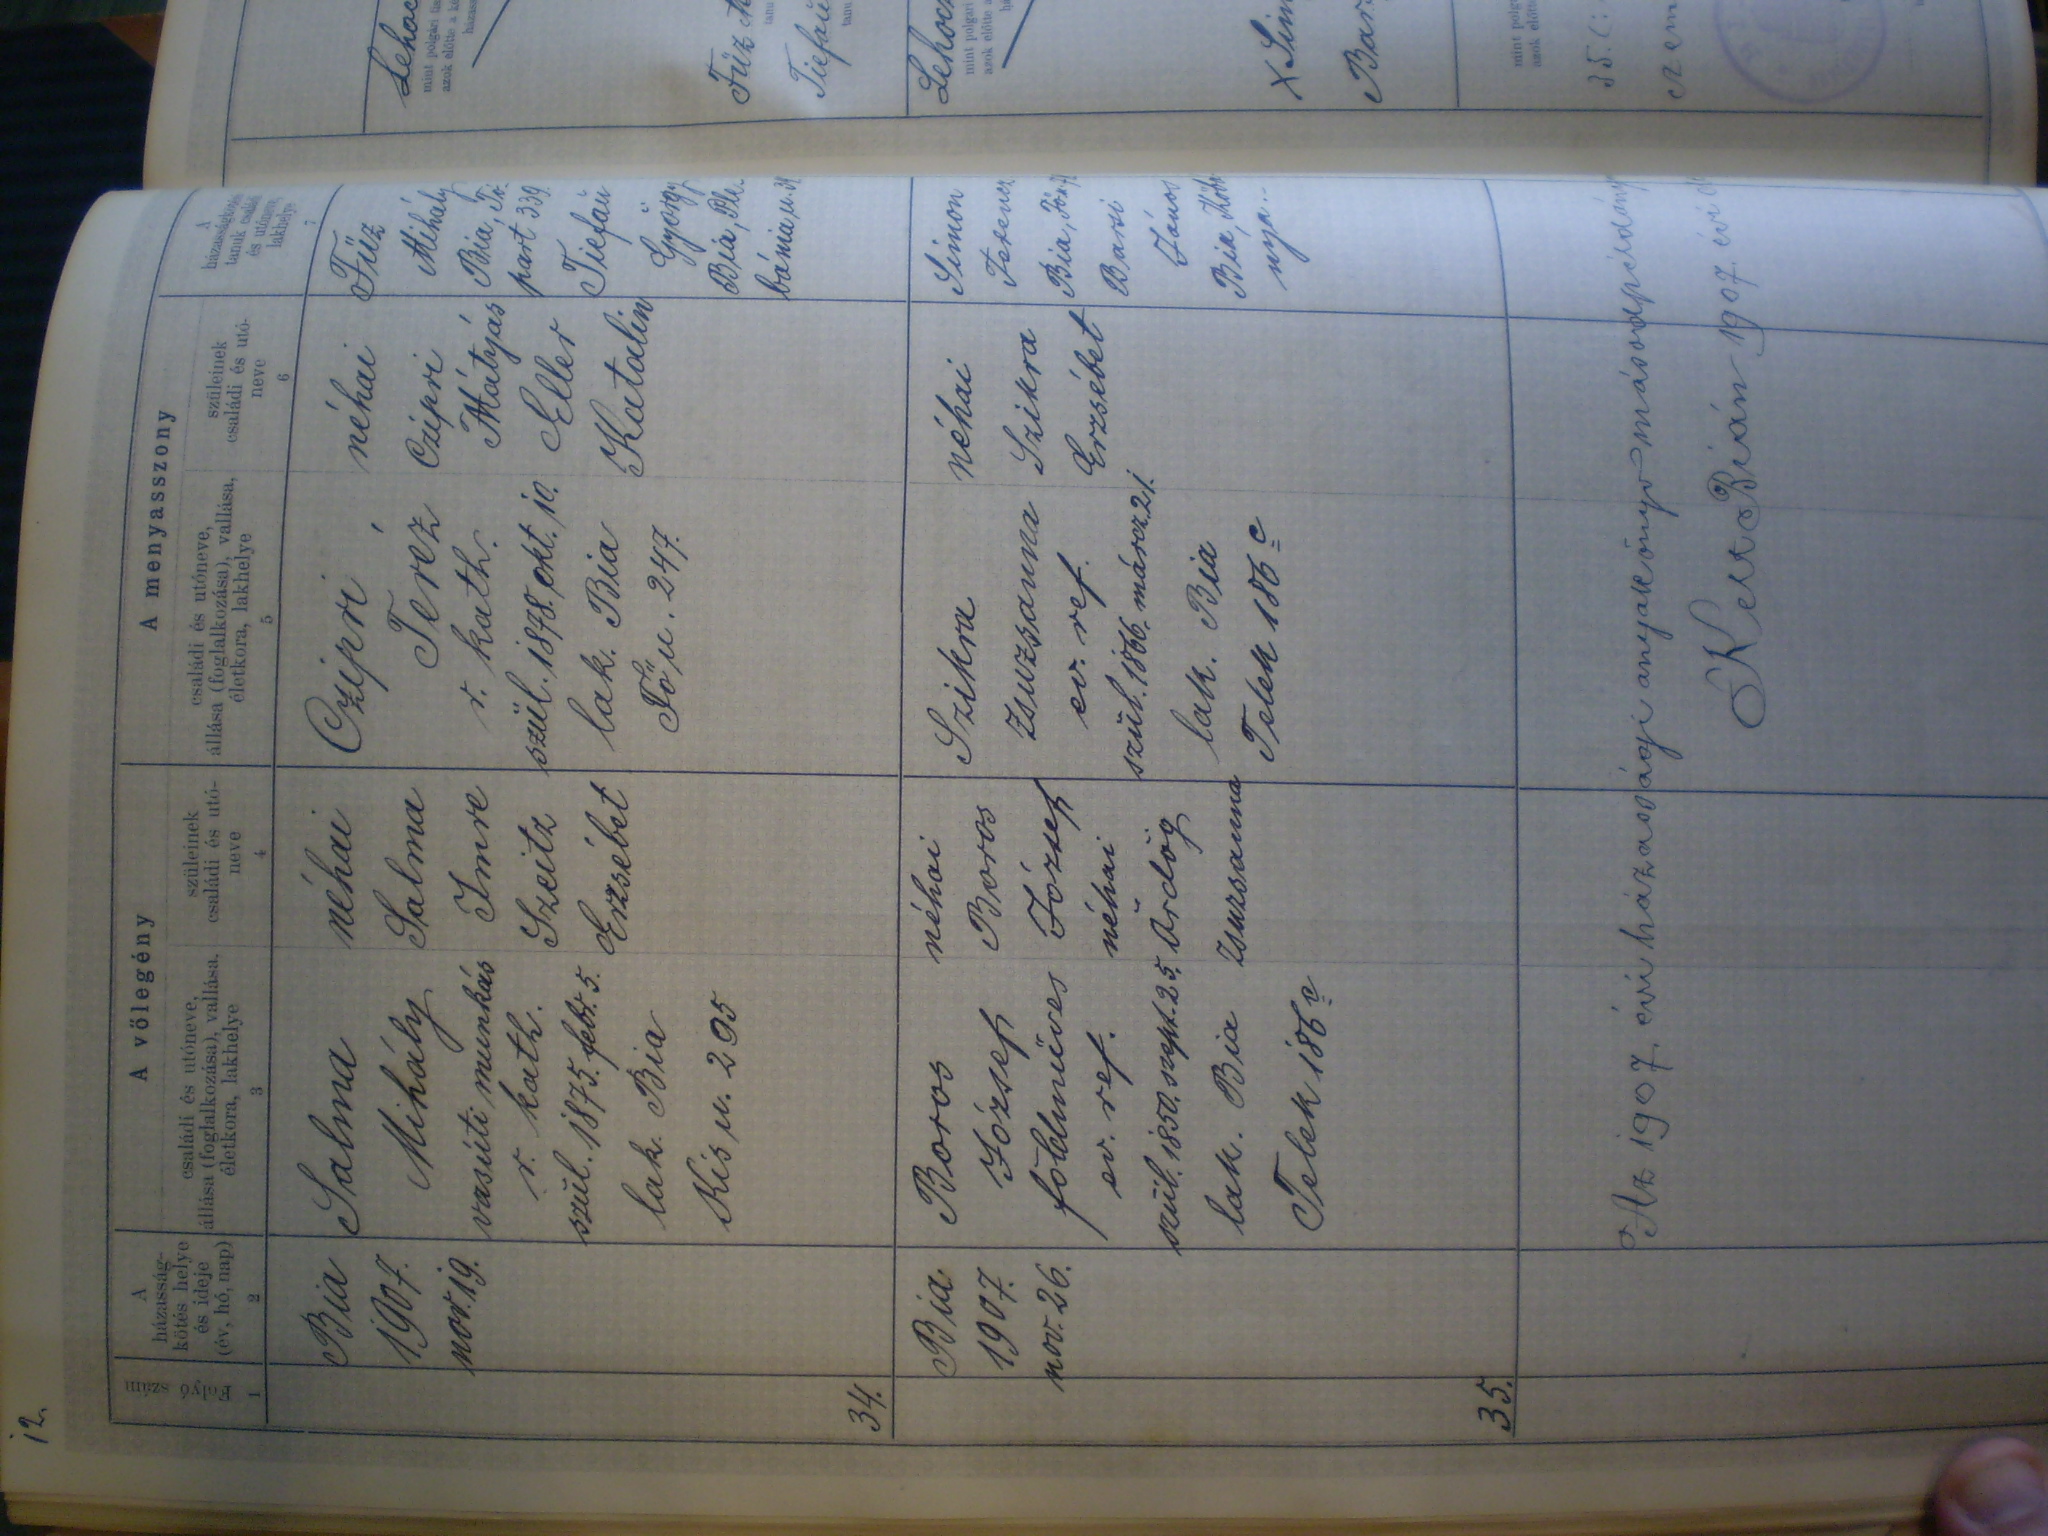 12.
A vőlegény
A menyasszony
Folyó
szám
1
A
házasság-
kötés helye
és ideje
(év, hó, nap)
2
családi és utóneve,
állása (foglalkozása), vallása,
életkora, lakhelye
3
szüleinek
családi és utó-
neve
4
családi és utóneve,
állása (foglalkozása), vallása,
életkora, lakhelye
5
szüleinek
családi és utó-
neve
6
A
házasságkötési
tanuk családi
és utóneve,
lakhelye
7
34.
Bia
1907.
nov. 19.
Salma
Mihály
vasúti munkás
r. kath.
szül. 1875. febr. 5.
lak. Bia
Kis u. 295
néhai
Salma
Imre
Szeitz
Erzsébet
Czipri
Teréz
r. kath.
szül. 1878. okt. 10.
lak. Bia
Fő u. 247.
néhai
Czipri
Mátyás
Eller
Katalin
Füz
Mihály
Bia, Tó-
part 339.
Tiefau
György
Bia, Plé-
bánia u.
35.
Bia
1907.
nov. 26.
Boros
József
földmüves
ev. ref.
szül. 1850. szept. 25.
lak. Bia
Telek 186 c
néhai
Boros
József
néhai
Ördög
Zsuzsanna
Szikra
Zsuzsanna
ev. ref.
szül. 1866. márcz. 21.
lak. Bia
Telek 186 c
néhai
Szikra
Erzsébet
Simon
Ferencz
Bia,
Barsi
János
Bia,
nya
Az 1907. évi házassági anyakönyv másodpéldány
Kelt Bián 1907. évi
Lehocz
mint polgári
azok előtte a
Füz M
tanu
Tiefau
tanu
Lehocz
mint polgári
azok előtte a
X Sim
Bar
mint polg
azok előtte
35.